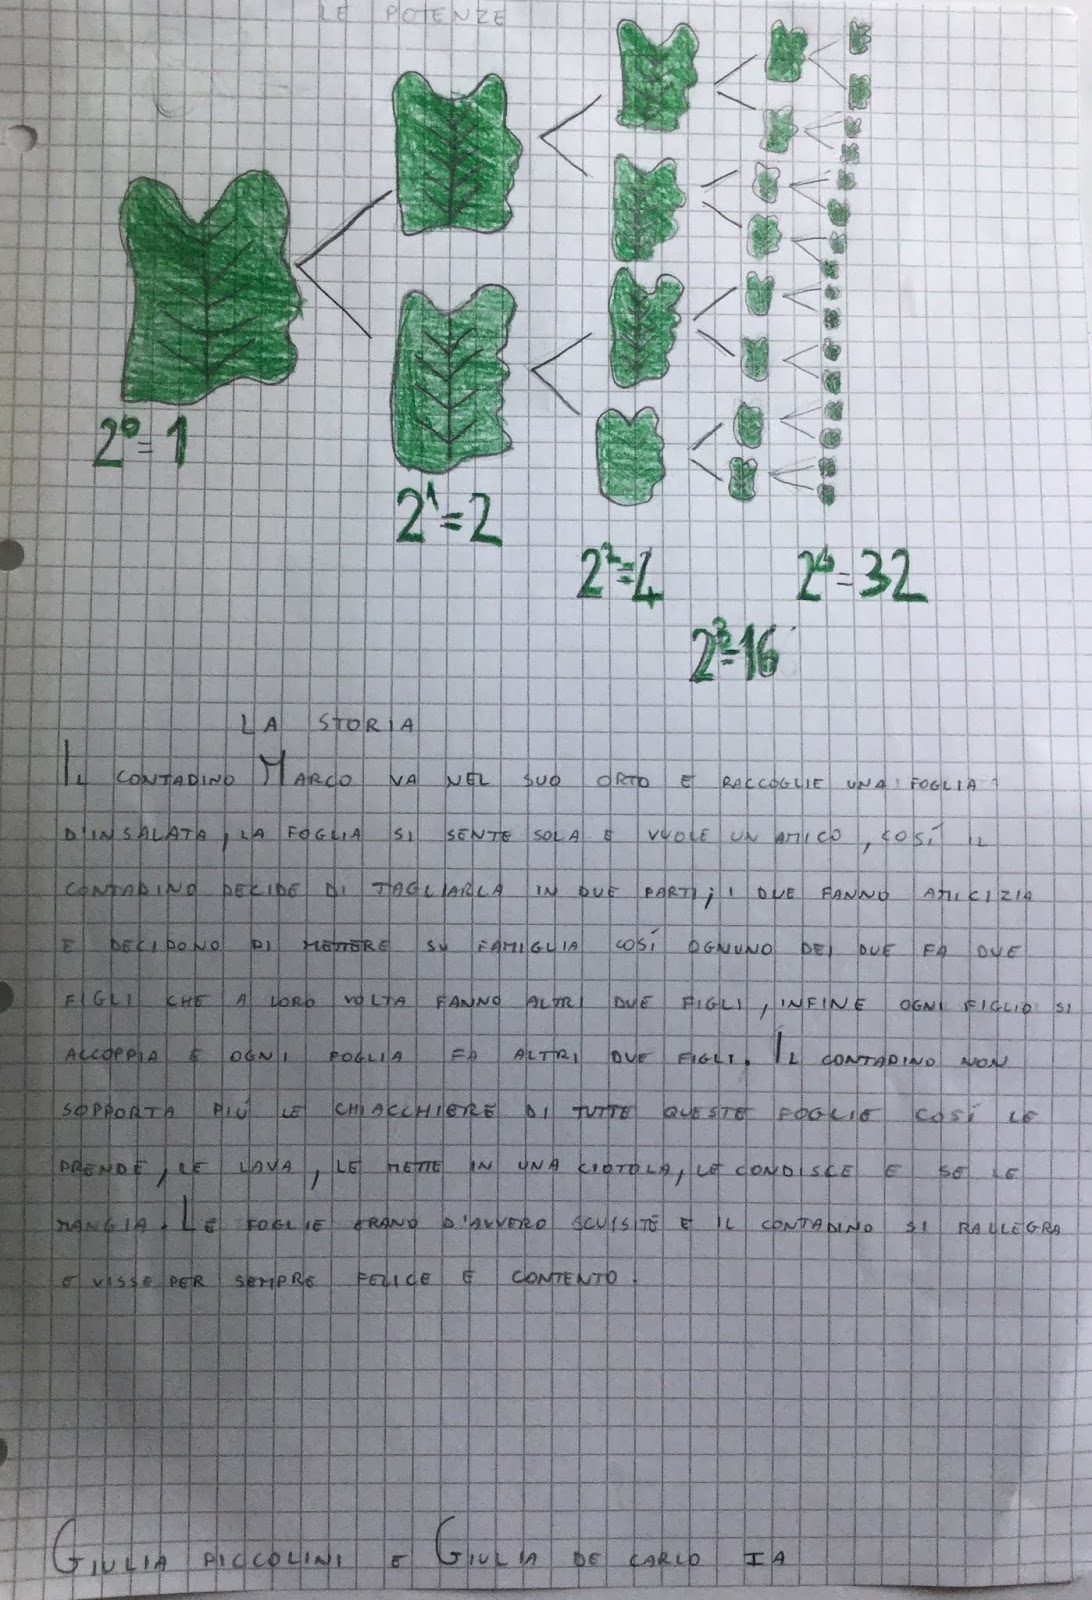 LE POTENZE
2⁰=1
2¹=2
2²=4
2⁴=32
2³=16
LA STORIA
IL CONTADINO MARCO VA NEL SUO ORTO E RACCOGLIE UNA FOGLIA
D'INSALATA, LA FOGLIA SI SENTE SOLA E VUOLE UN AMICO, COSÍ IL
CONTADINO DECIDE DI TAGLIARLA IN DUE PARTI; I DUE FANNO AMICIZIA
E DECIDONO DI METTERE SU FAMIGLIA COSÍ OGNUNO DEI DUE FA DUE
FIGLI CHE A LORO VOLTA FANNO ALTRI DUE FIGLI, INFINE OGNI FIGLIO SI
ACCOPPIA E OGNI FOGLIA FA ALTRI DUE FIGLI. IL CONTADINO NON
SOPPORTA PIÚ LE CHIACCHIERE DI TUTTE QUESTE FOGLIE COSÍ LE
PRENDE, LE LAVA, LE METTE IN UNA CIOTOLA, LE CONDISCE E SE LE
MANGIA. LE FOGLIE ERANO D'AVVERO SCUISITE E IL CONTADINO SI RALLEGRA
E VISSE PER SEMPRE FELICE E CONTENTO.
GIULIA PICCOLINI E GIULIA DE CARLO IA